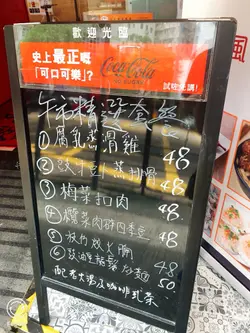 歡迎光臨
史上最正嘅
「可口可樂」?
Coca-Cola
試吓先講!
午市精選套餐
① 腐乳蒸滑雞 48
② 豉汁豆 蒸排骨 48
③ 梅菜扣肉 48
④ 欖菜肉碎四季豆 48
⑤ 炒 48
⑥ 豉油 炒麵 50
配老火湯及咖啡或茶
風